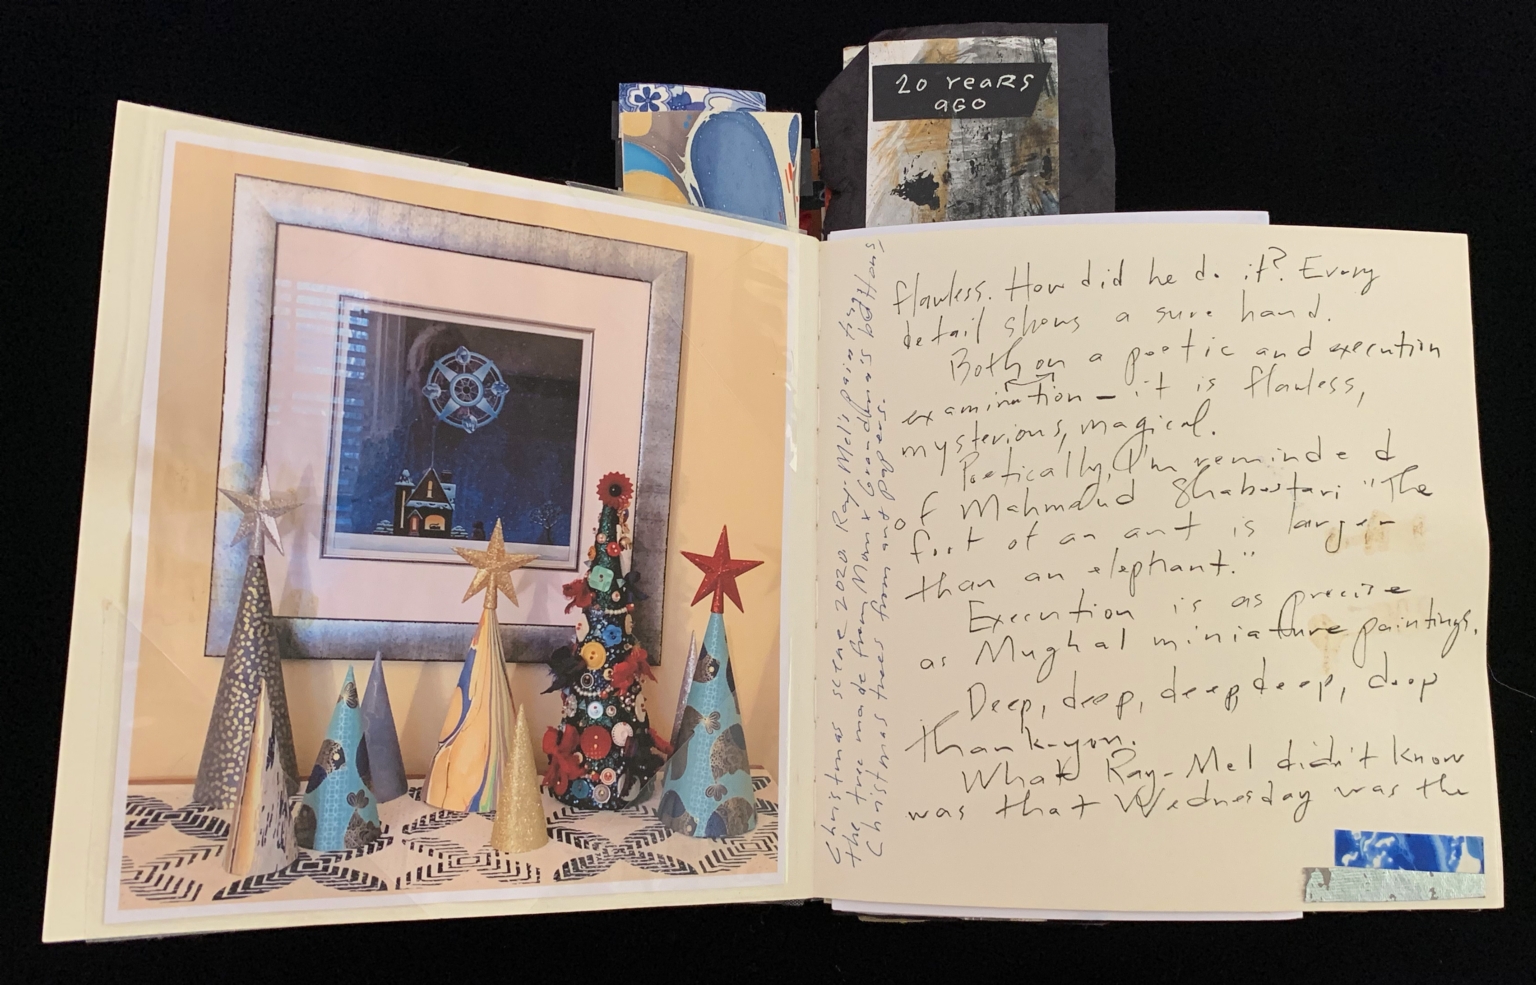 20 YEARS
AGO
flawless. How did he do it? Every
detail shows a sure hand.
Both on a poetic and execution
examination – it is flawless,
mysterious, magical.
Poetically, I'm reminded
of Mahmoud Shabostari "The
foot of an ant is larger
than an elephant."
Execution is as precise
as Mughal miniature paintings.
Deep, deep, deep, deep, deep
thank-you.
What Ray-Mel didn't know
was that Wednesday was the
Christmas scene 2020. Ray-Mel's painting,
the tree made from Mom & Grandma's buttons
Christmas trees from and papers.